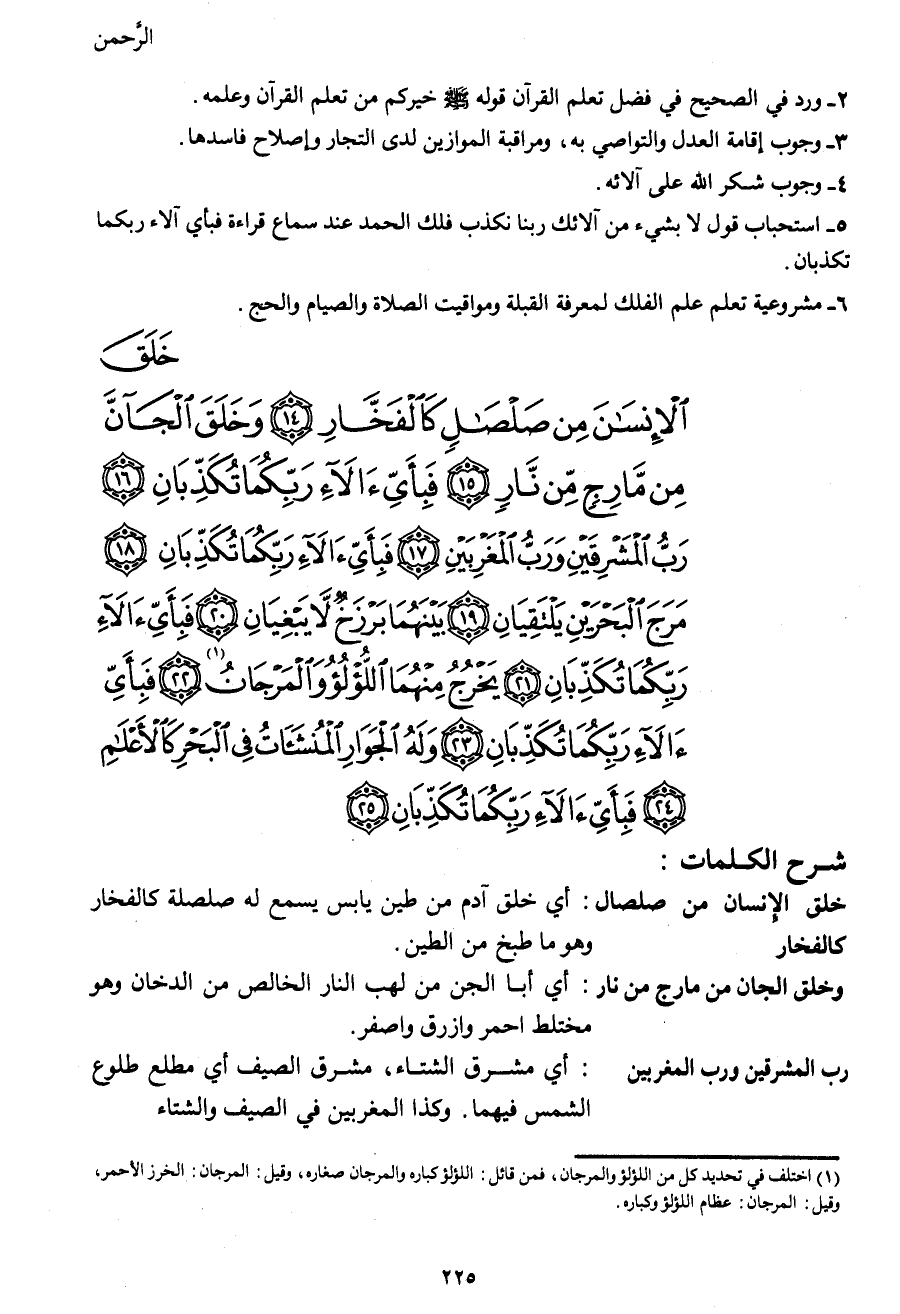 الرَّحمن
٢ـ ورد في الصحيح في فضل تعلم القرآن قوله ﷺ خيركم من تعلم القرآن وعلمه.
٣ـ وجوب إقامة العدل والتواصي به، ومراقبة الموازين لدى التجار وإصلاح فاسدها.
٤ـ وجوب شكر الله على آلائه.
٥ـ استحباب قول لا بشيء من آلائك ربنا نكذب فلك الحمد عند سماع قراءة فبأي آلاء ربكما
تكذبان.
٦ـ مشروعية تعلم علم الفلك لمعرفة القبلة ومواقيت الصلاة والصيام والحج.
خَلَقَ
ٱلْإِنسَٰنَ مِن صَلْصَٰلٍ كَٱلْفَخَّارِ ﴿١٤﴾ وَخَلَقَ ٱلْجَآنَّ
مِن مَّارِجٍ مِّن نَّارٍ ﴿١٥﴾ فَبِأَىِّ ءَالَآءِ رَبِّكُمَا تُكَذِّبَانِ ﴿١٦﴾
رَبُّ ٱلْمَشْرِقَيْنِ وَرَبُّ ٱلْمَغْرِبَيْنِ ﴿١٧﴾ فَبِأَىِّ ءَالَآءِ رَبِّكُمَا تُكَذِّبَانِ ﴿١٨﴾
مَرَجَ ٱلْبَحْرَيْنِ يَلْتَقِيَانِ ﴿١٩﴾ بَيْنَهُمَا بَرْزَخٌ لَّا يَبْغِيَانِ ﴿٢٠﴾ فَبِأَىِّ ءَالَآءِ
رَبِّكُمَا تُكَذِّبَانِ ﴿٢١﴾ يَخْرُجُ مِنْهُمَا ٱللُّؤْلُؤُ وَٱلْمَرْجَانُ (١) ﴿٢٢﴾ فَبِأَىِّ
ءَالَآءِ رَبِّكُمَا تُكَذِّبَانِ ﴿٢٣﴾ وَلَهُ ٱلْجَوَارِ ٱلْمُنشَـَٔاتُ فِى ٱلْبَحْرِ كَٱلْأَعْلَٰمِ
﴿٢٤﴾ فَبِأَىِّ ءَالَآءِ رَبِّكُمَا تُكَذِّبَانِ ﴿٢٥﴾
شرح الكلمات :
خلق الإنسان من صلصال : أي خلق آدم من طين يابس يسمع له صلصلة كالفخار
كالفخار وهو ما طبخ من الطين.
وخلق الجان من مارج من نار : أي أبا الجن من لهب النار الخالص من الدخان وهو
مختلط احمر وازرق واصفر.
رب المشرقين ورب المغربين : أي مشرق الشتاء، مشرق الصيف أي مطلع طلوع
الشمس فيهما. وكذا المغربين في الصيف والشتاء
(١) اختلف في تحديد كل من اللؤلؤ والمرجان، فمن قائل: اللؤلؤ كباره والمرجان صغاره، وقيل: المرجان: الخرز الأحمر،
وقيل: المرجان: عظام اللؤلؤ وكباره.
٢٢٥